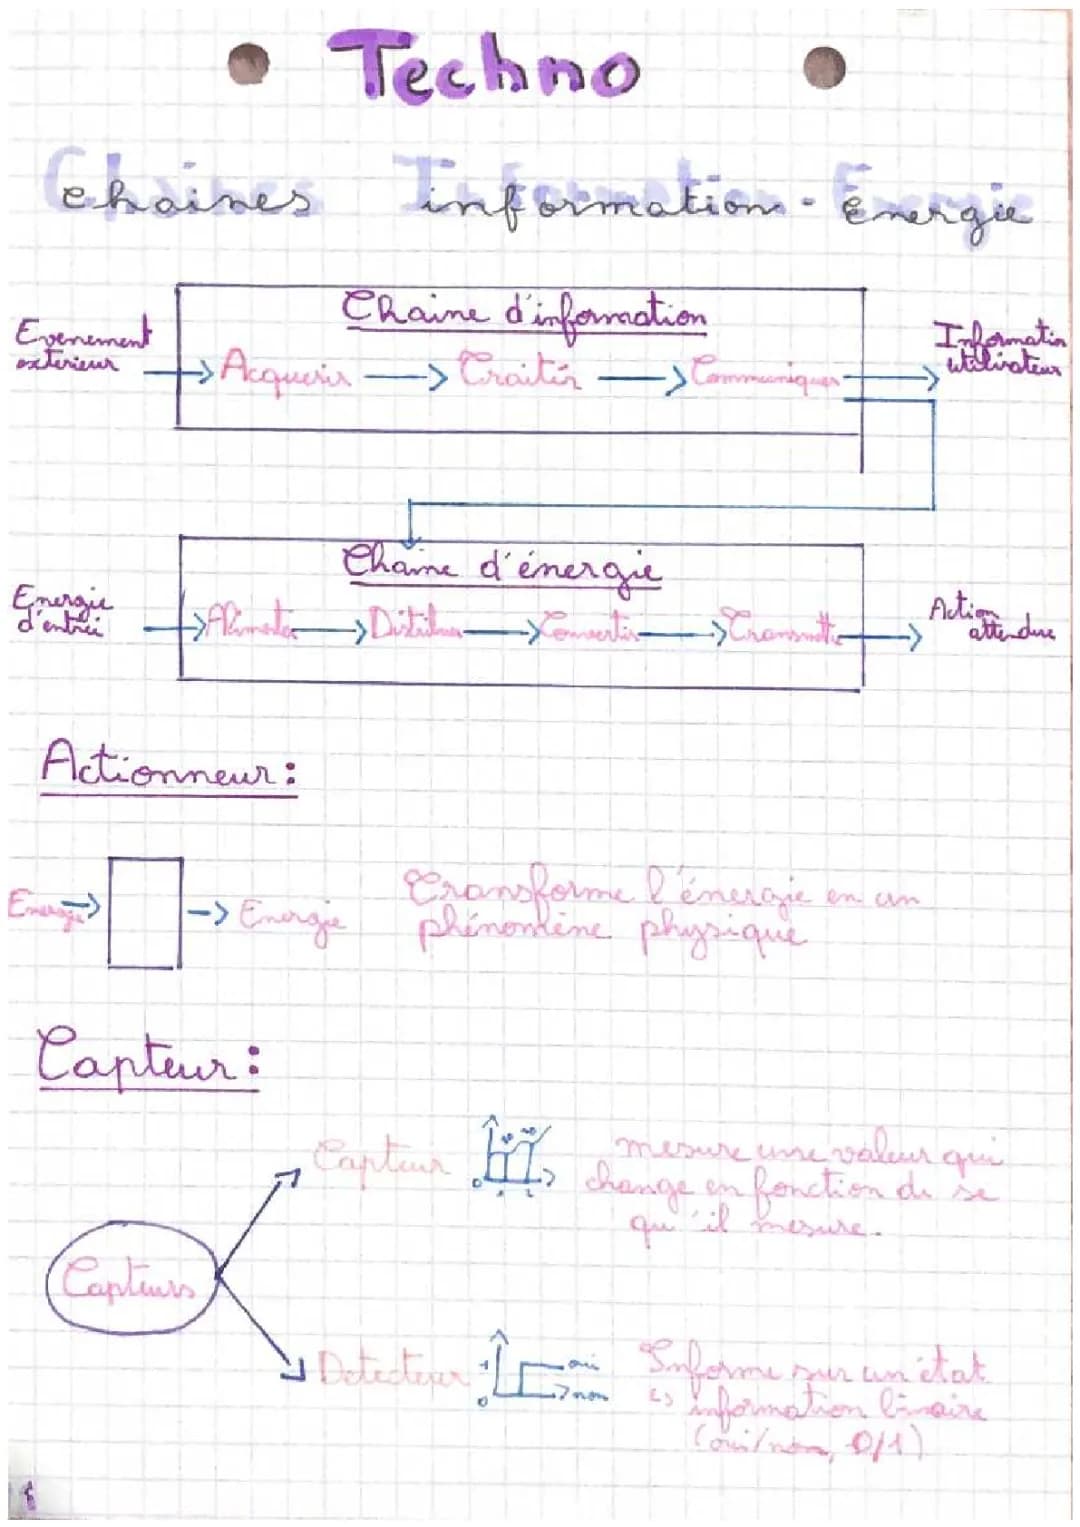 Techno
Chaines Information - Énergie
chaines information - énergie
Chaine d'information
Evenement
exterieur
Acquerir
Traiter
Communiquer
Information
utilisateur
Chaine d'énergie
Energie
d'entrée
Alimenter
Distribuer
Convertir
Transmettre
Action
attendue
Actionneur :
Energie
Energie
Transforme l'énergie en un
phénomène physique
Capteur :
Capteur
0
1 2
mesure une valeur qui
change en fonction de se
qu'il mesure.
Capteurs
Detecteur
1
0
oui
non
Informe sur un état
↳ information binaire
(oui/non, 0/1)